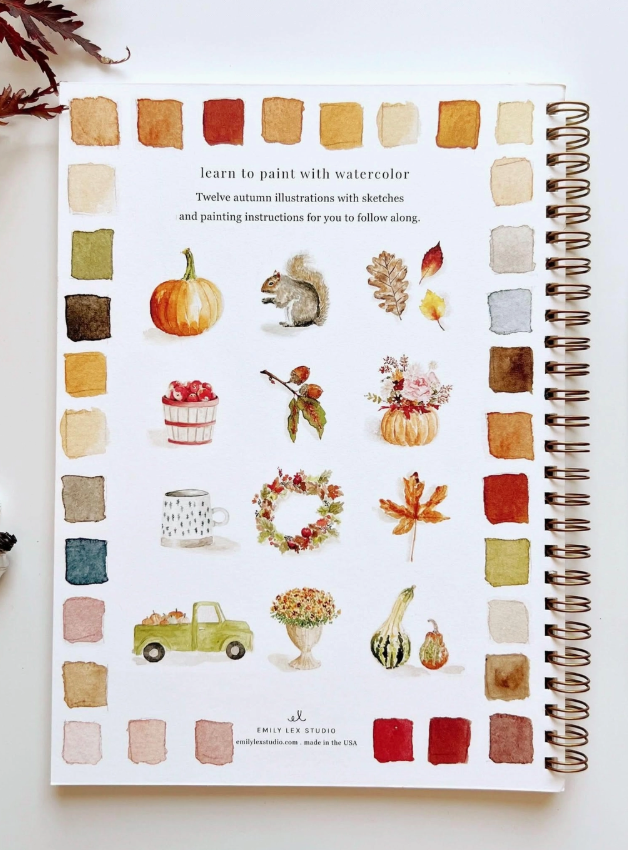 learn to paint with watercolor
Twelve autumn illustrations with sketches
and painting instructions for you to follow along.
el
EMILY LEX STUDIO
emilylexstudio.com . made in the USA